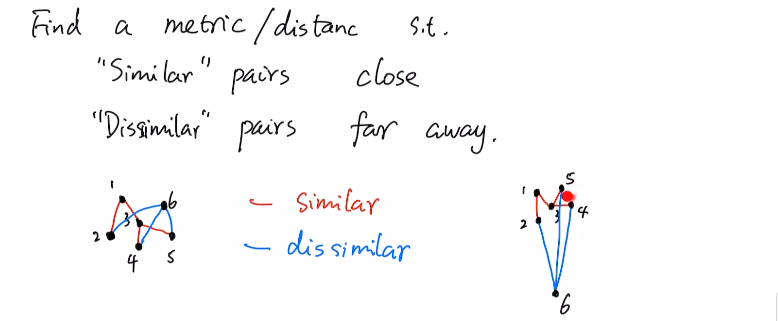 Find a metric/distanc s.t.
"Similar" pairs close
"Dissimilar" pairs far away.
1 6 2 3 4 5
— similar
— dissimilar
1 5 2 3 4 6